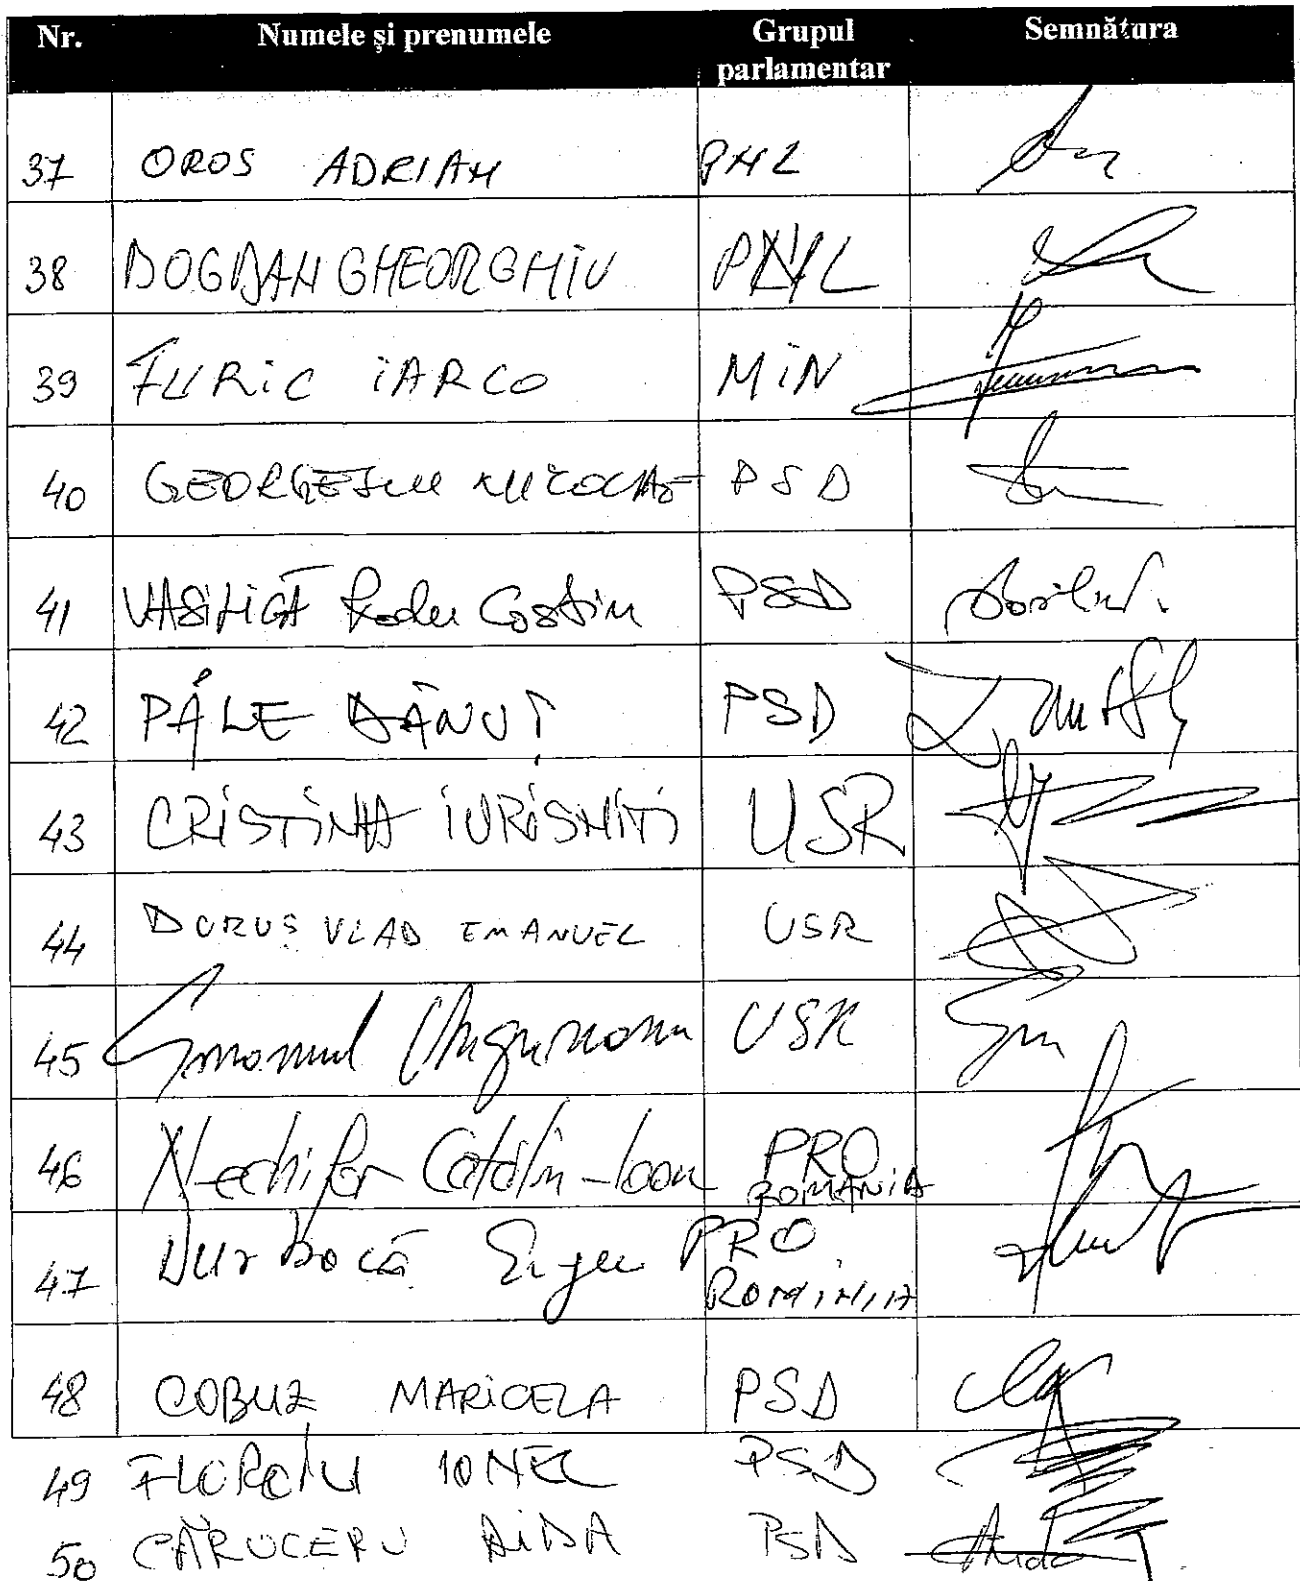 Nr. Numele și prenumele Grupul parlamentar Semnătura
37 OROS ADRIAN PNL
38 BOGDAN GHEORGHIU PNL
39 FIRIC IARCO MIN
40 GEORGESCU NICOLAE PSD
41 VASILICĂ Radu Costin PSD
42 PALE DĂNUȚ PSD
43 CRISTINA IURIȘNIȚI USR
44 DURUȘ VLAD EMANUEL USR
45 Emanuel Ungureanu USR
46 Nechifor Cătălin-Ioan PRO ROMÂNIA
47 Durbacă Eugen PRO ROMINIIA
48 COBUZ MARICELA PSD
49 FLOREA IONEL PSD
50 CĂRUCERU AIDA PSD